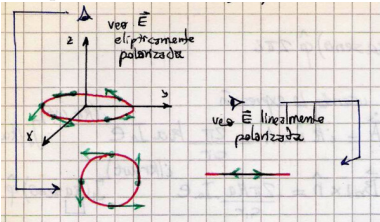 veo E⃗
elipticamente
polarizada
z
y
x
veo E⃗ linealmente
polarizada